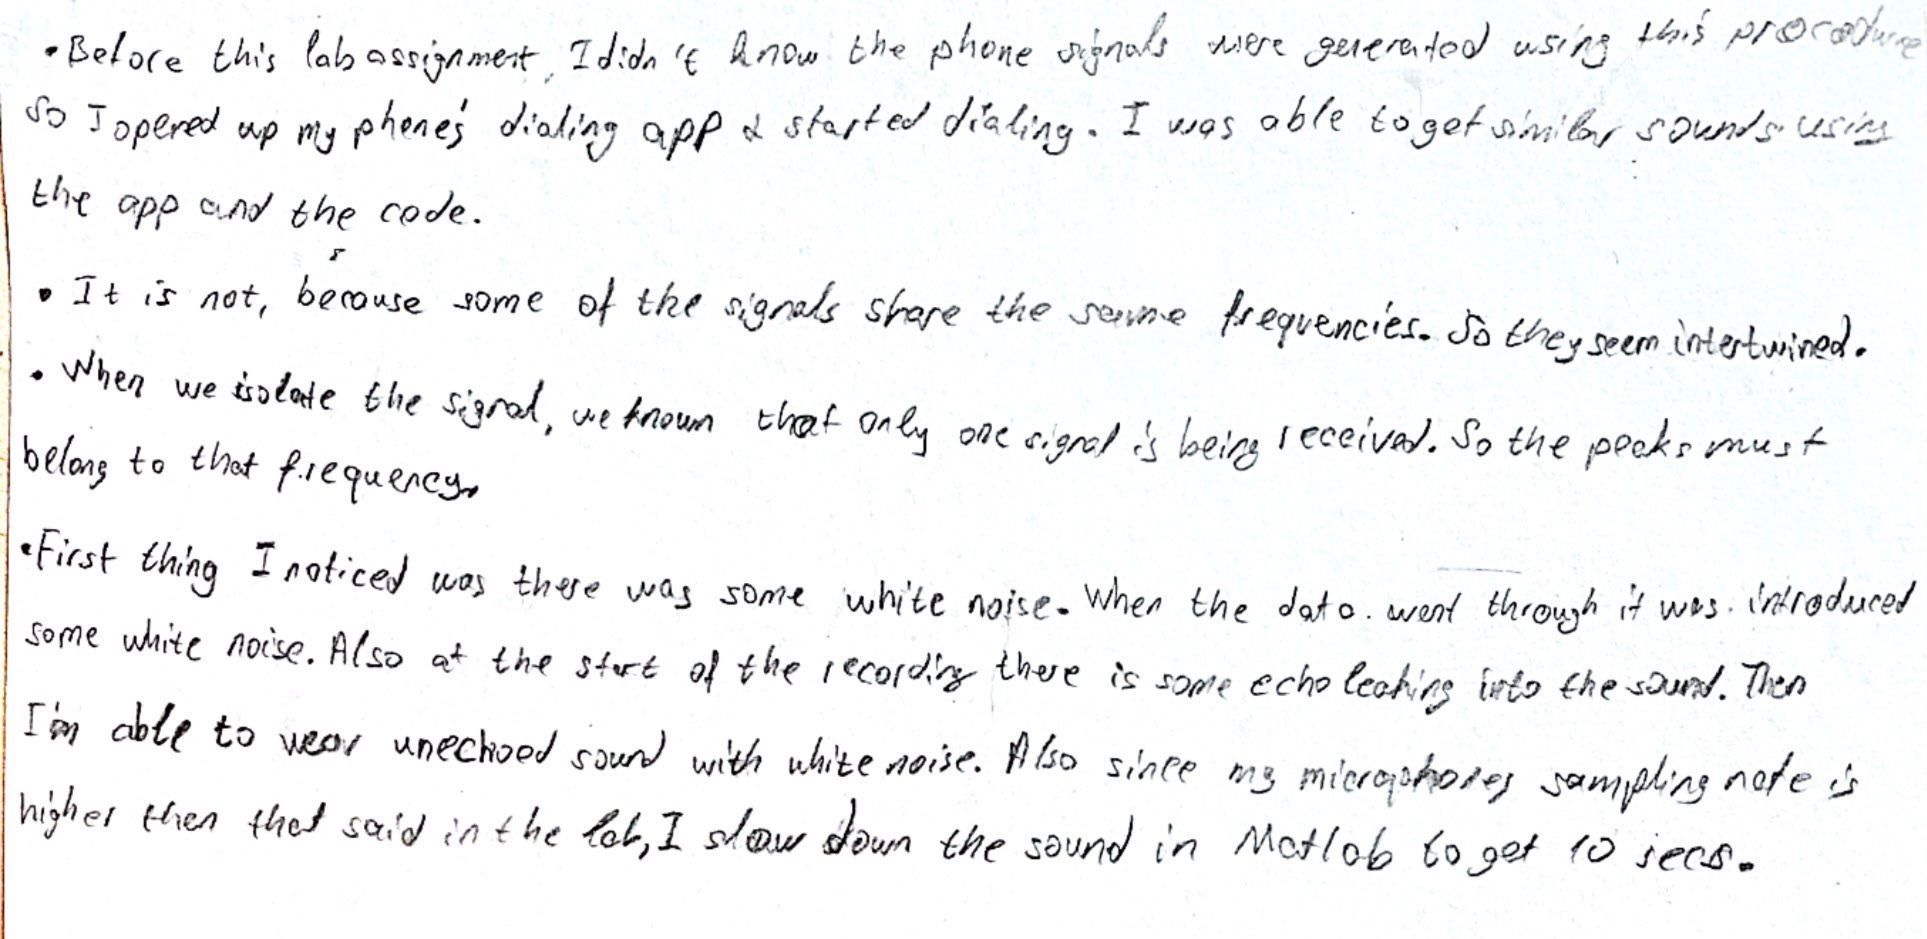 • Before this lab assignment, I didn't know the phone signals were generated using this procedure
So I opened up my phone's dialing app & started dialing. I was able to get similar sounds using
the app and the code.
• It is not, because some of the signals share the same frequencies. So they seem intertwined.
• When we isolate the signal, we known that only one signal is being received. So the peaks must
belong to that frequency.
• First thing I noticed was there was some white noise. When the data went through it was introduced
some white noise. Also at the start of the recording there is some echo leaking into the sound. Then
I'm able to hear unechoed sound with white noise. Also since my microphones sampling rate is
higher then that said in the lab, I slow down the sound in Matlab to get 10 secs.